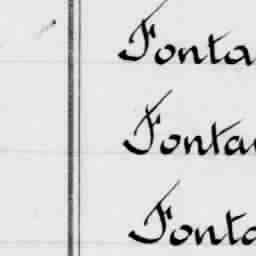 Fonta
Fontan
Fonta